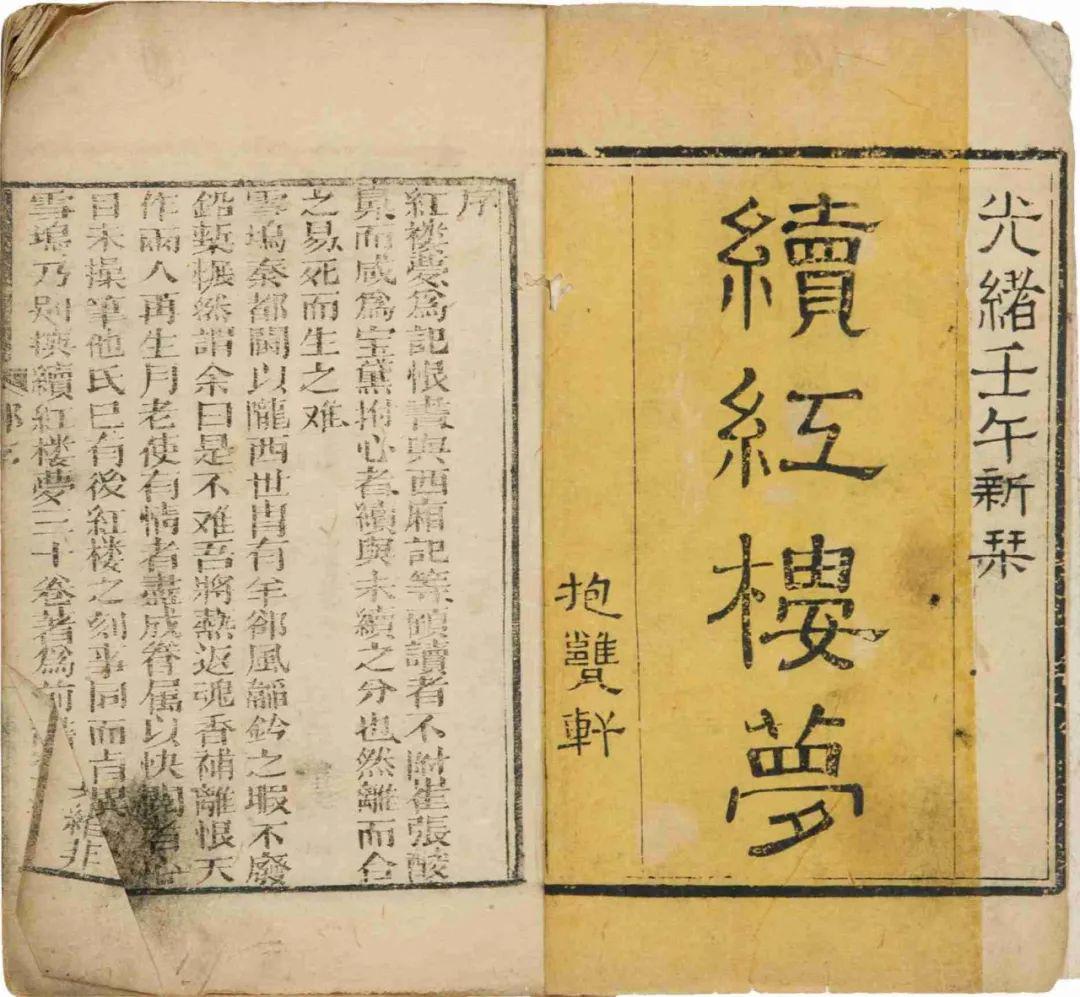 光緒壬午新栞
續紅樓夢
抱甕軒
序
紅楼夢爲記恨書與西廂記等顧讀者不附崔張酸
鼻而咸爲宝黛拊心者續與未續之分也然離而合
之易死而生之难
雪塢秦都閫以隴西世冑有羊郤風韜鈐之暇不廢
鉛槧冁然謂余曰是不难吾將爇返魂香補離恨天
作兩人再生月老使有情者盡成眷属以快閱者心
目未操筆他氏已有後紅楼之刻事同而旨異
雪塢乃别撰續紅楼夢三十卷著爲前書